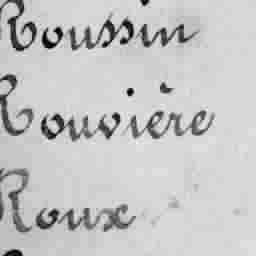 Roussin
Rouvière
Roux